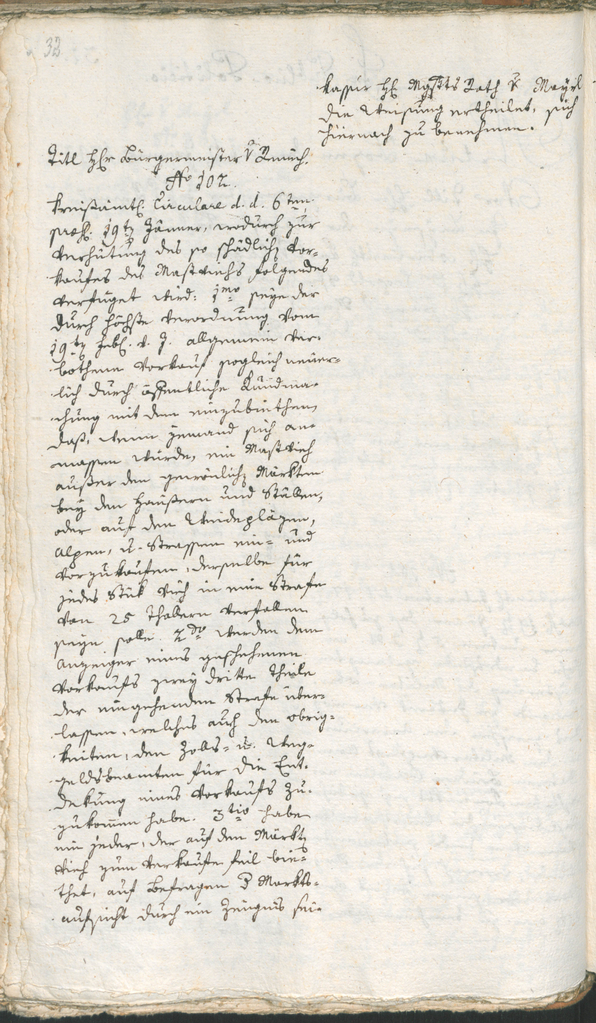 32
kassir H: Mgsts Rath v. Mayrl
die Weisung ertheilet, sich
hiernach zu benehmen.
Titl Hr Bürgermeister v
No 102.
Kreisämtl: Circulare d. d. 6ten,
præs: 19tn Jänner, wodurch zur
Verhütung des so schädlichn Vor-
kaufes des Mastviehs folgendes
verfüget wird: 1mo seye der
durch höchste Verordnung vom
19tn Febr. v. J. allgemein ver-
bothene Vorkauf sogleich neuer-
lich durch öffentliche Kundma-
chung mit dem einzubiethen,
daß, wenn jemand sich an-
massen würde, ein Mastvieh
außer den gewönlichn Märkten
bey den Häußern und Ställen,
oder auf den Weideplätzen,
Alpen, u. Strassen ein- und
vorzukaufen, derselbe für
jedes Stük Vieh in eine Strafe
von 25 Thalern verfallen
seyn solle. 2do werden dem
Anzeiger eines geschehenen
Vorkaufs zwey dritte Theile
der eingehenden Strafe über-
lassen, welches auch den Obrig-
keiten, den Zolls- u. Weg-
geldsbeamten für die Ent-
dekung eines Vorkaufs zu-
zukommen habe. 3tio habe
ein jeder, der auf den Märktn
Vieh zum Verkaufe feil bie-
thet, auf Befragen d Markts-
aufsicht durch ein Zeugnis sei-